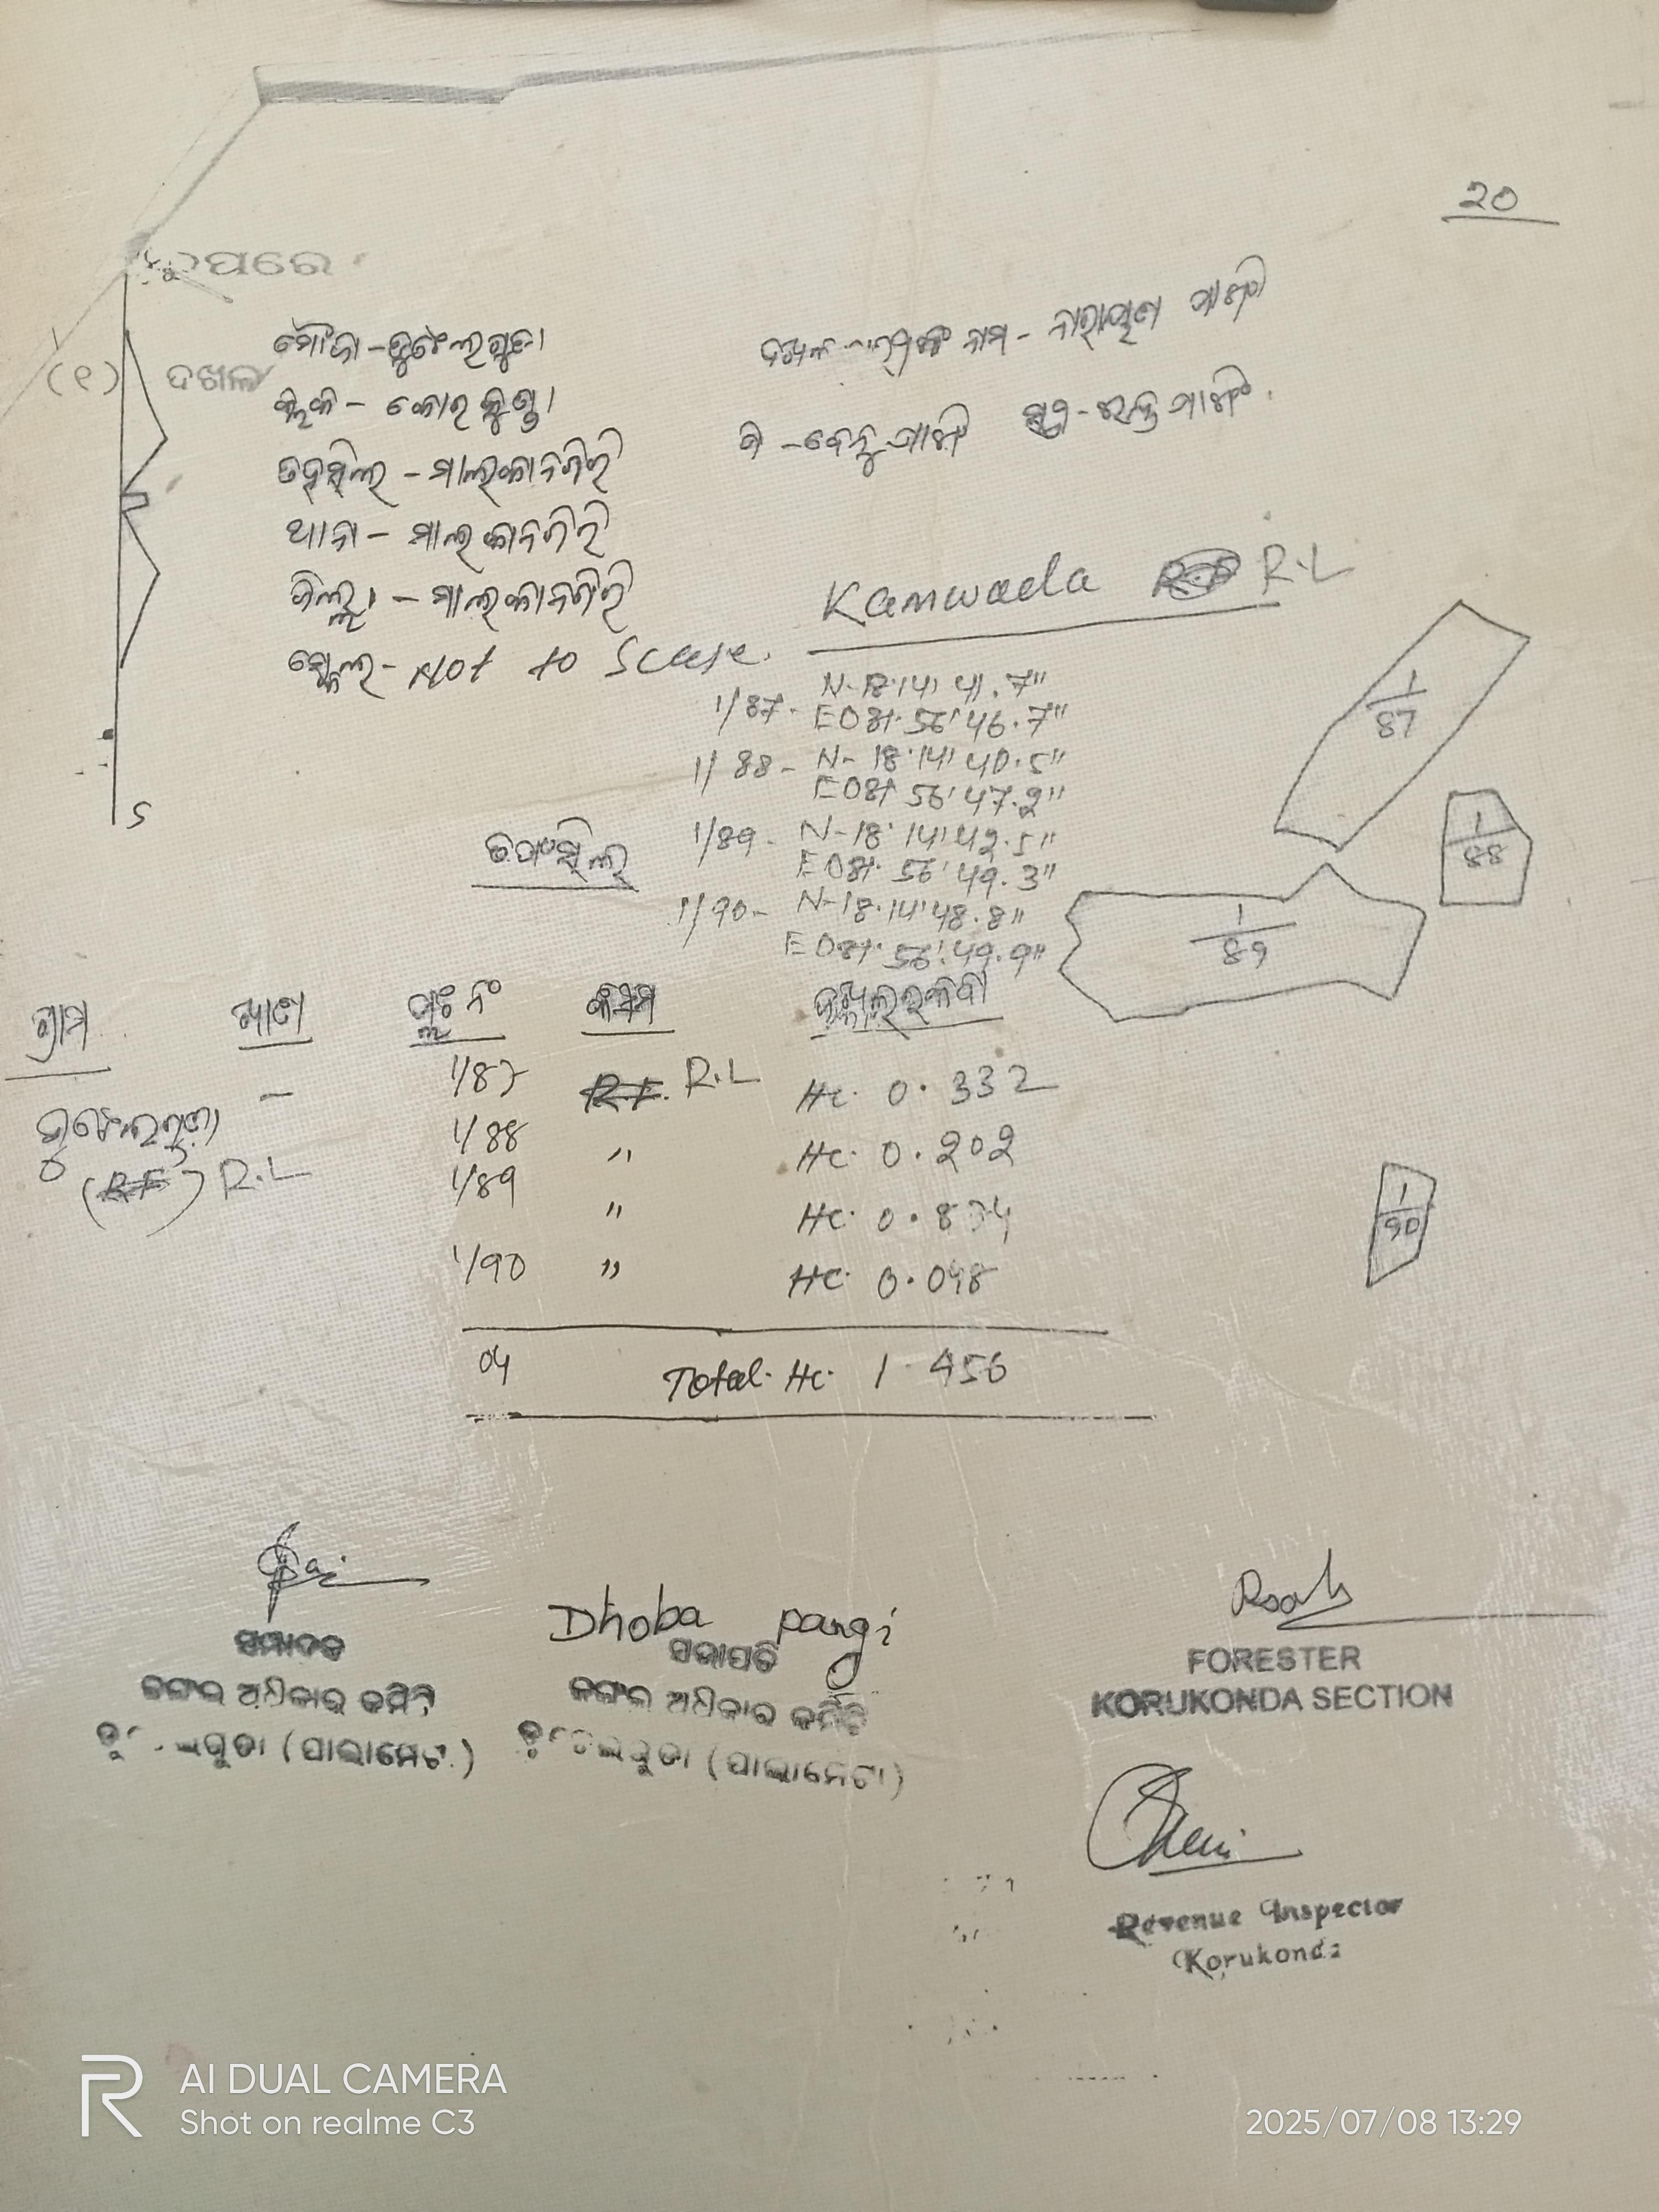 ୨୦
ଉପରେ
(୧) ଦଖଲ
ମୌଜା - ଡୁଙ୍ଗେଲଗୁଡା
ବ୍ଲକ - କୋରକୁଣ୍ଡା
ତହସିଲ - ମାଲକାନଗିରି
ଥାନା - ମାଲକାନଗିରି
ଜିଲ୍ଲା - ମାଲକାନଗିରି
ସ୍କେଲ - Not to Scale.
S
ନାମ - ନାରାୟଣ ପାଙ୍ଗି
Kamwada R.L
1/87- N-18°14' 41.7"
E081° 56' 46.7"
1/88- N-18°14' 40.5"
E081° 56' 47.2"
1/89- N-18°14' 42.5"
E081° 56' 49.3"
1/90- N-18°14' 48.8"
E081° 56' 49.9"
1/87
1/88
1/89
1/90
ତପସିଲ
ଗ୍ରାମ ଖାତା ପ୍ଲଟ ନଂ କିସମ ଦଖଲ ରକବା
ଡୁଙ୍ଗେଲଗୁଡା - 1/87 R.F. R.L Hc. 0.332
(R.F) R.L 1/88 " Hc. 0.202
1/89 " Hc. 0.874
1/90 " Hc. 0.048
04 Total. Hc. 1.456
Dhoba pangi
ସମ୍ପାଦକ
ଜଙ୍ଗଲ ଅଧିକାର କମିଟି
(ପାଲାମେଟା)
ସଭାପତି
ଜଙ୍ଗଲ ଅଧିକାର କମିଟି
(ପାଲାମେଟା)
FORESTER
KORUKONDA SECTION
Revenue Inspector
Korukonda
AI DUAL CAMERA
Shot on realme C3
2025/07/08 13:29